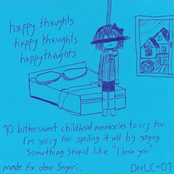 hxppy thxughts
hxppy thxughts
hxppythxughts
10 bittersweet childhood memories to cry for
I'm sorry for spoiling it all by saying
something stupid like "I love you"
made for otter singer...
DittLC-07